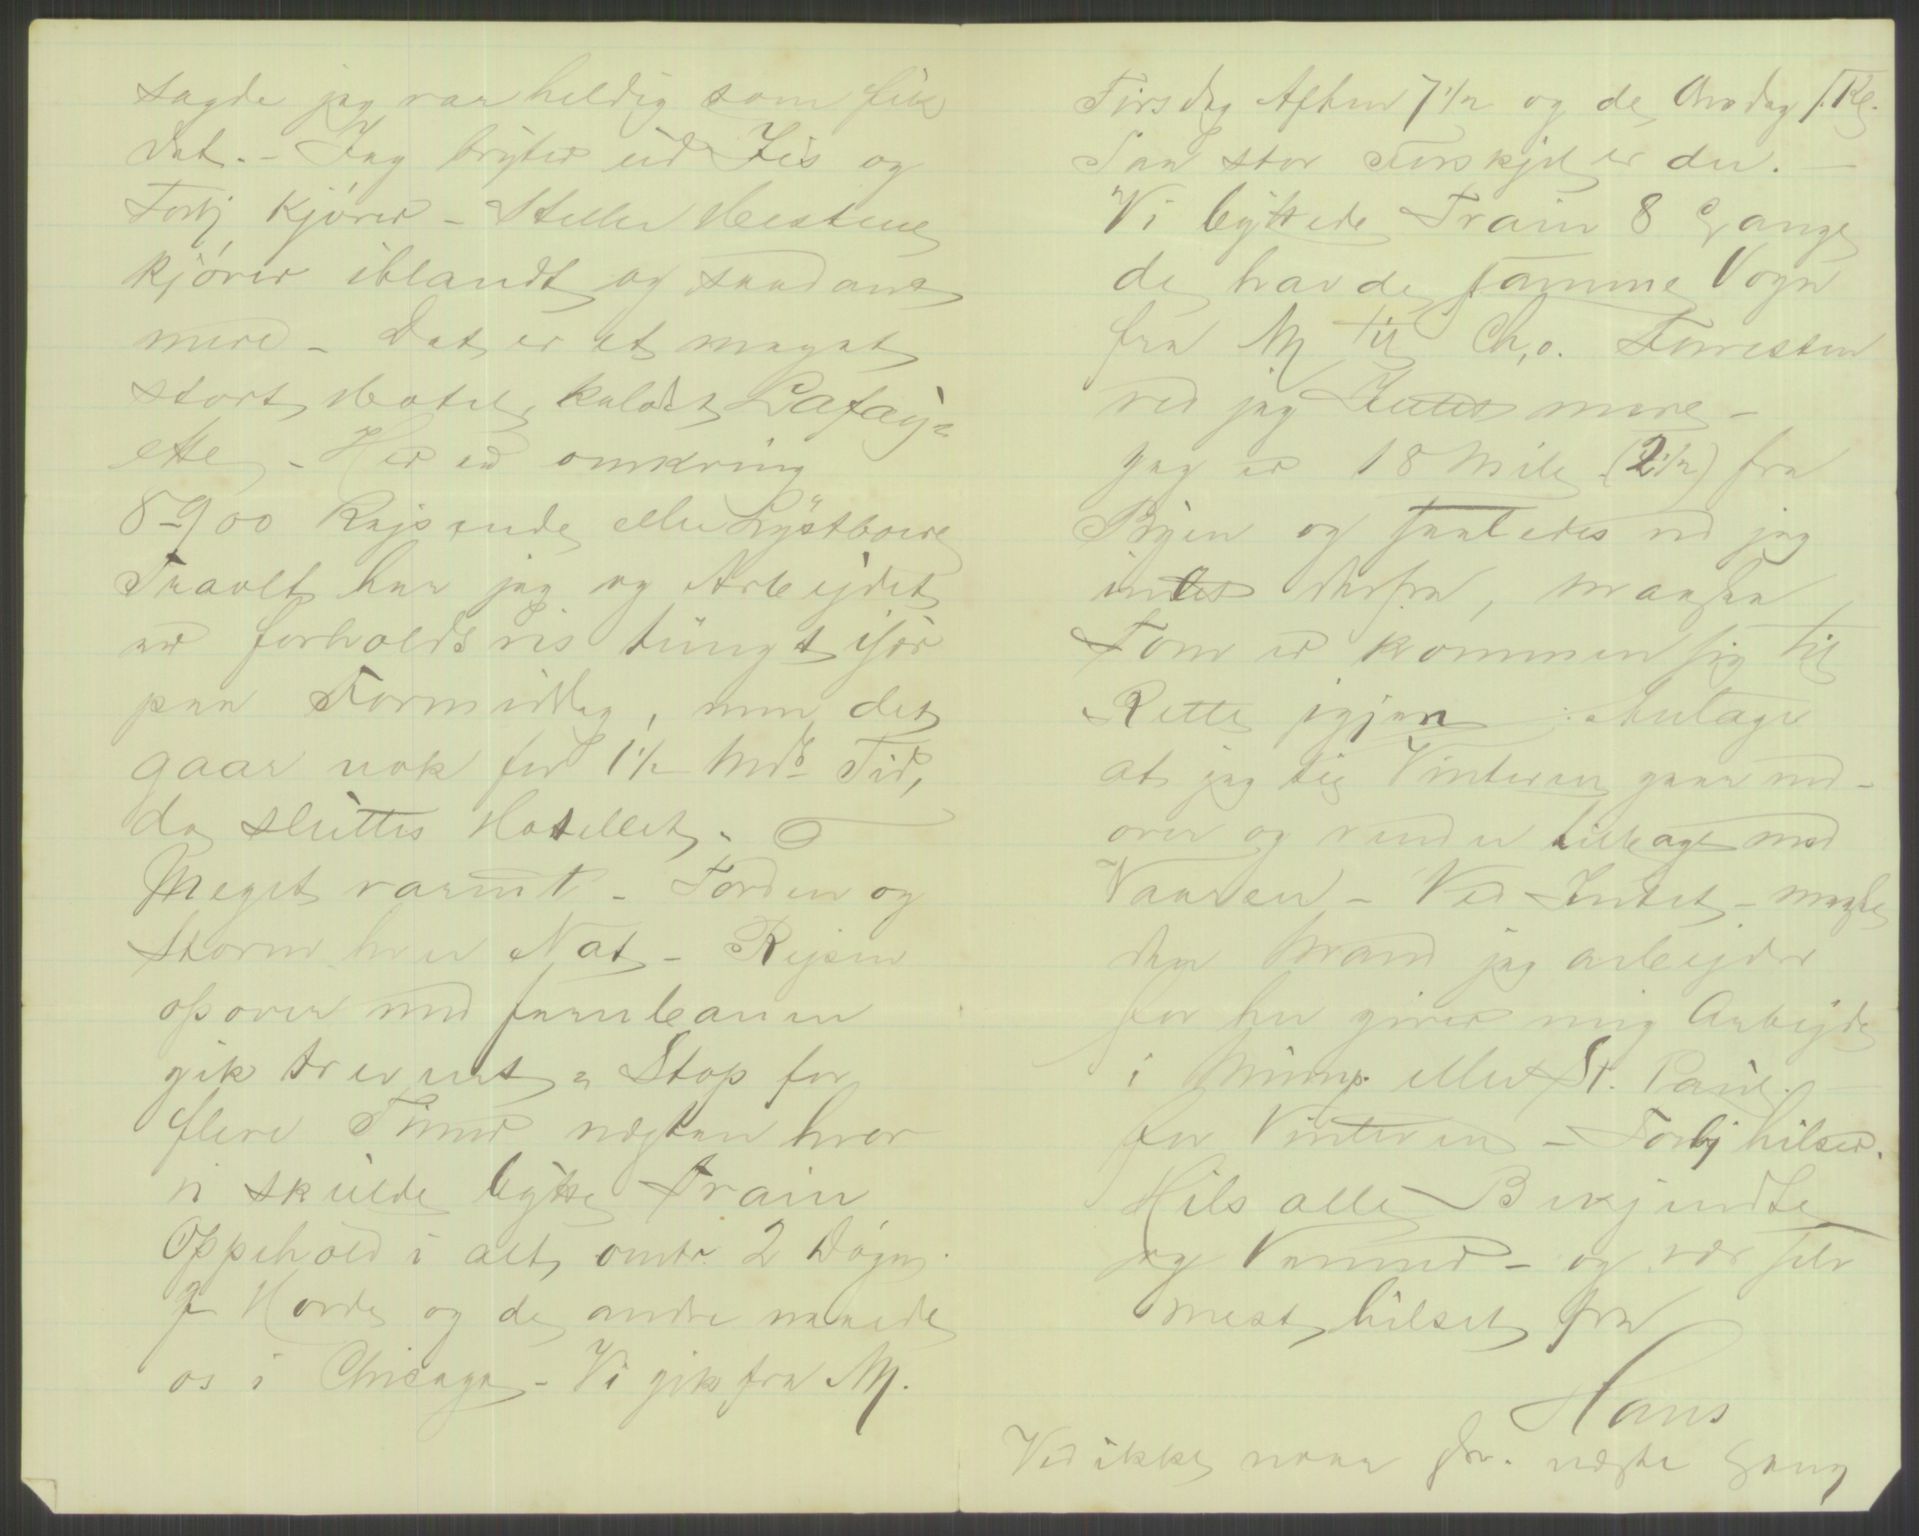 sagde jeg var heldig som fik
det. - Jeg bryter ud Iis og
Torbj kjører - Steller Hestene
kjører iblandt og saadant
mere - Det er et meget
stort Hotel, kaldet Lafay=
ette - Her er omkring
8-900 Rejsende eller Lystboere
Travelt har jeg og Arbejdet
er forholdsvis tungt især
paa Formiddag, men det
gaar nok for 1 1/2 Mds Tid,
da sluttes Hotellet. -
Meget varmt - Torden og
Storm hver Nat - Rejsen
opover med Jernbanen
gik trevent = Stop for
flere Timer næsten hver
vi skulde bytte Train
Oppehold i alt omtr. 2 Døgn.
Horde og de andre naaede
os i Chicago - Vi gik fra M.
Tirsdag Aften 7 1/2 og de Onsdag Kl.
Saa stor Forskjel er der. -
Vi byttede Train 8 Gange
de havde samme Vogn
fra M til Ch,o. Forresten
ved jeg Intet mere -
Jeg er 18 Mile (2 1/2) fra
Byen og saaledes ved jeg
intet derfra, maaske
Tom er kommen sig til
Rette igjen Antager
at jeg til Vinteren gaar ned-
over og vender tilbage med
Vaaren - Ved Intet - maaske
den Mand jeg arbejder
for her giver mig Arbejde
i Minnp. eller St. Paul. -
for Vinteren - Torbj hilser.
Hils alle Bekjendte
og Venner - og vær selv
mest hilset fra
Hans
Ved ikke naar næste Gang